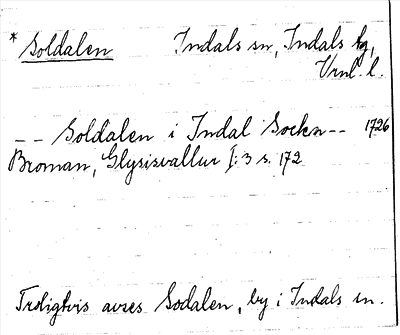 * Soldalen Indals sn, Indals tg,
Vrnl. l.
-- Soldalen i Indal Sockn -- 1726
Broman, Glysisvallur I: 3 s. 172
Troligtvis avses Sodalen, by i Indals sn.